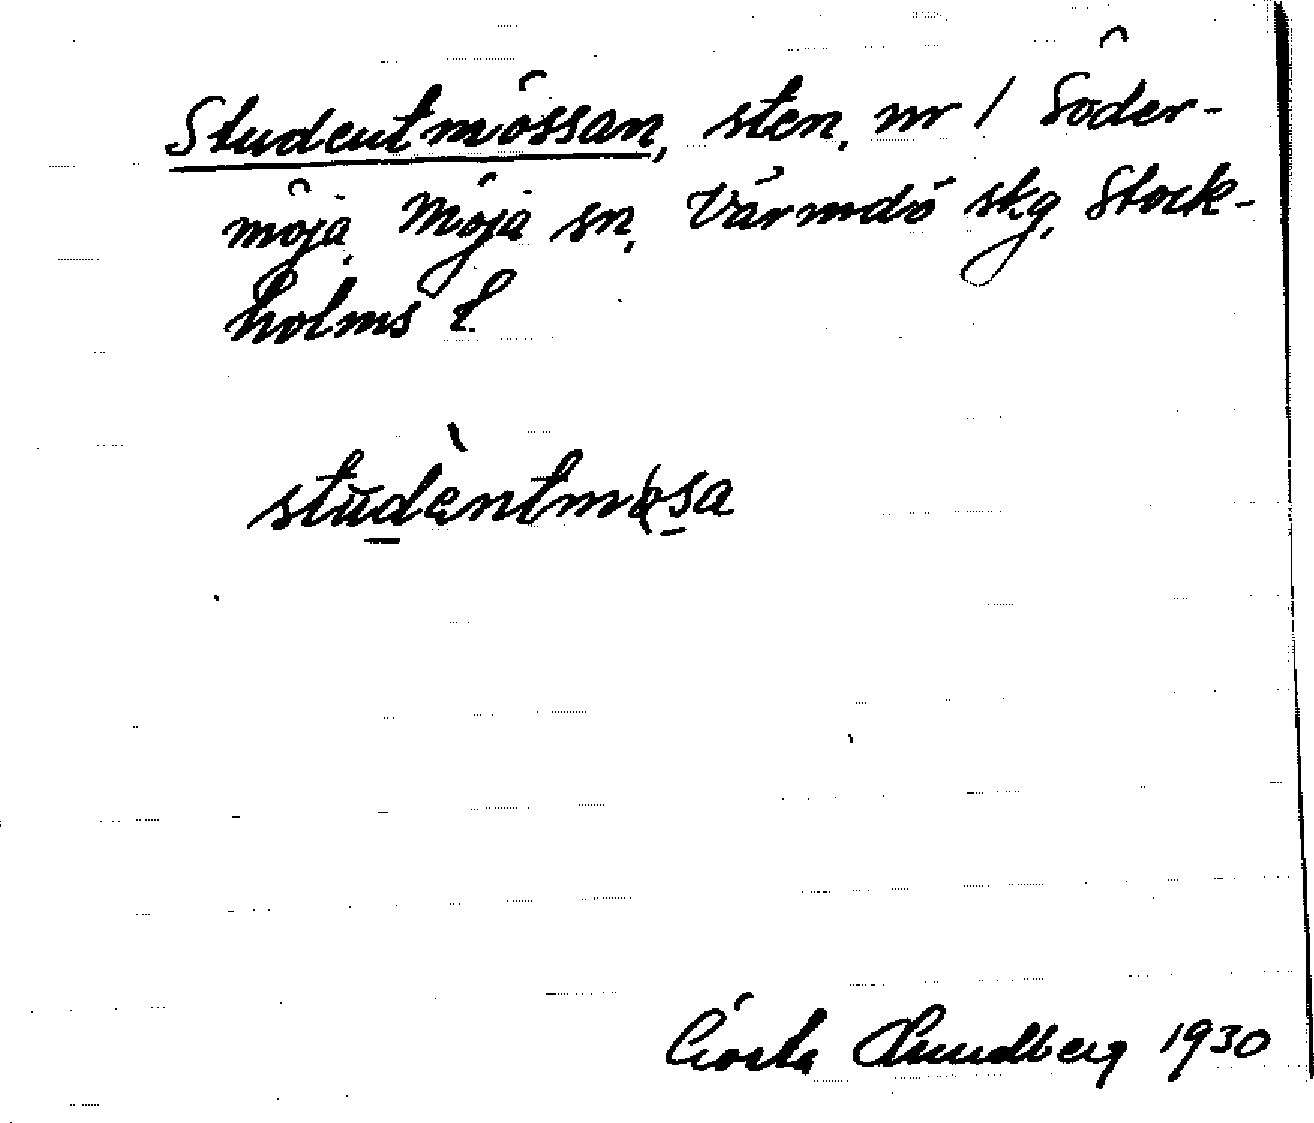 Studentmössan, sten, nr / Söder-
möja, Möja sn, Värmdö skg, Stock-
holms l.
studèntmøsa
Gösta Lundberg 1930